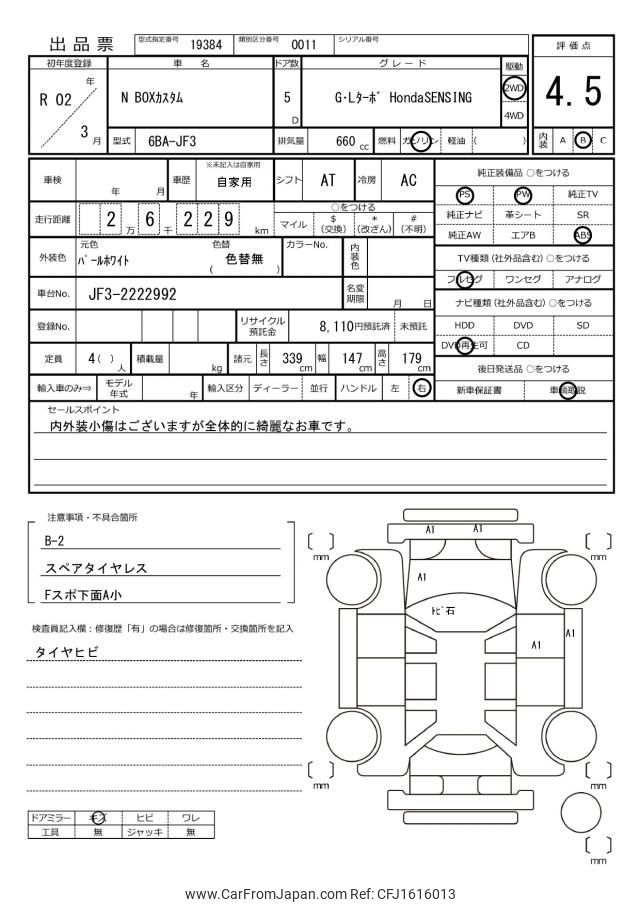 出品票 型式指定番号 19384 類別区分番号 0011 シリアル番号
評価点
4.5
内装 A B C
初年度登録 車名 ドア数 グレード 駆動
R 02 年 3 月
N BOXカスタム 5 D G・Lターボ HondaSENSING 2WD 4WD
型式 6BA-JF3 排気量 660 cc 燃料 ガソリン 軽油 ( )
車検 年 月 車歴 ※未記入は自家用 自家用 シフト AT 冷房 AC
走行距離 2 万 6 千 2 2 9 km
○をつける
マイル $ (交換) * (改ざん) # (不明)
外装色 元色 パールホワイト 色替 ( 色替無 ) カラーNo. 内装色
車台No. JF3-2222992 名変期限 月 日
登録No. リサイクル預託金 8,110円預託済 未預託
定員 4( ) 人 積載量 kg 諸元 長さ 339 cm 幅 147 cm 高さ 179 cm
輸入車のみ⇒ モデル年式 年 輸入区分 ディーラー 並行 ハンドル 左 右
純正装備品 ○をつける
PS PW 純正TV
純正ナビ 革シート SR
純正AW エアB ABS
TV種類(社外品含む) ○をつける
フルセグ ワンセグ アナログ
ナビ種類(社外品含む) ○をつける
HDD DVD SD
DVD再生可 CD
後日発送品 ○をつける
新車保証書 車輌取説
セールスポイント
内外装小傷はございますが全体的に綺麗なお車です。
注意事項・不具合箇所
B-2
スペアタイヤレス
Fスポ下面A小
検査員記入欄：修復歴「有」の場合は修復箇所・交換箇所を記入
タイヤヒビ
ドアミラー キズ ヒビ ワレ
工具 無 ジャッキ 無
A1 A1
A1
トビ石
A1 A1
mm mm
mm mm
mm
www.CarFromJapan.com Ref: CFJ1616013